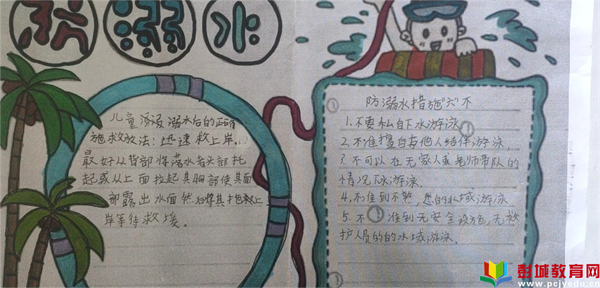 防溺水
儿童
溺水后的正确
施救方法：迅速救上岸，
最好从背部将溺水者头部托
起或从上面拉起其胸部使其面
部露出水面然后将其拖救上
岸等待救埃。
防溺水措施"六"不
1.不要私自下水游泳
2.不准擅自与他人结伴游泳，
3.不可以在无家人或老师带队的
情况下游泳。
4.不准到不熟悉的水域游泳
5.不准到无安全设施，无救
护人员的的水域游泳。
彭城教育网
www.pcjyedu.cn